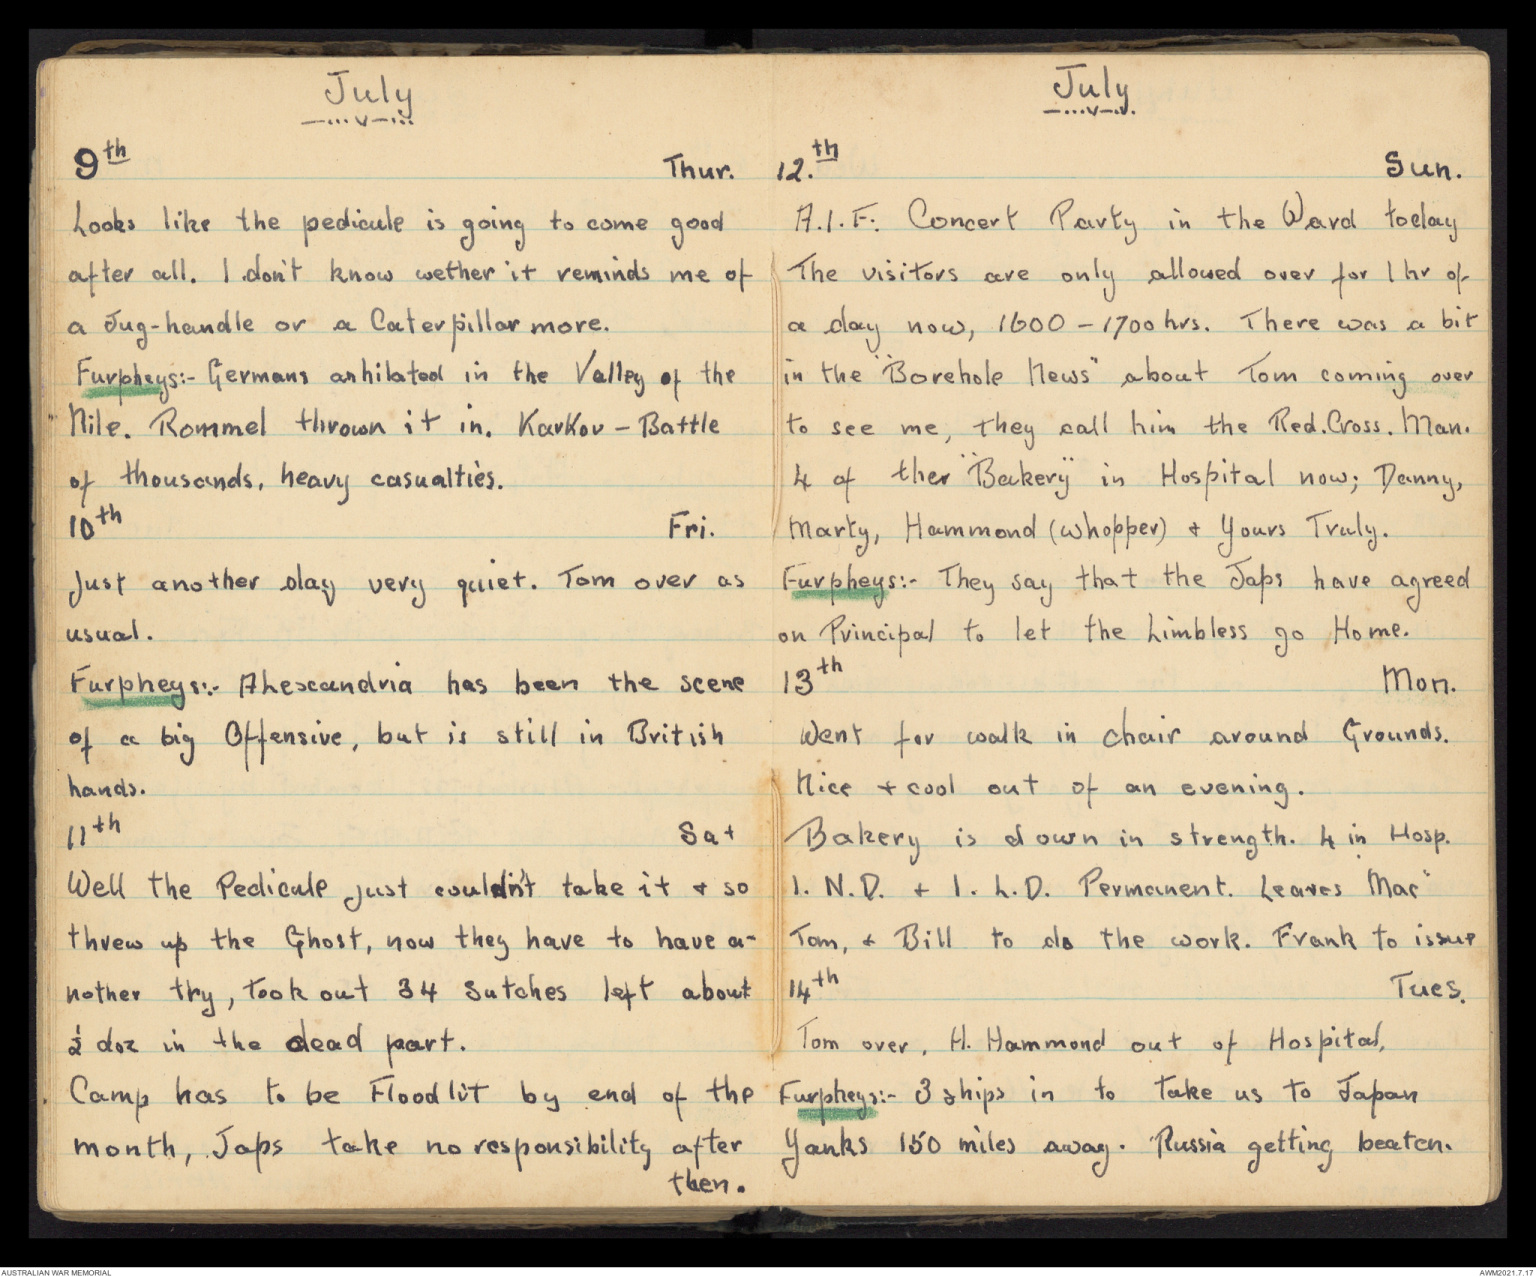 July
9th Thur.
Looks like the pedicule is going to come good
after all. I don't know wether it reminds me of
a Jug-handle or a Caterpillar more.
Furpheys:- Germans anhilated in the Valley of the
Nile. Rommel thrown it in. Karkov - Battle
of thousands, heavy casualties.
10th Fri.
Just another day very quiet. Tom over as
usual.
Furpheys:- Alescandria has been the scene
of a big Offensive, but is still in British
hands.
11th Sat
Well the Pedicule just couldn't take it & so
threw up the Ghost, now they have to have a-
nother try, took out 34 Sutches left about
½ doz in the dead part.
Camp has to be Floodlit by end of the
month, Japs take no responsibility after
then.
July
12.th Sun.
A.I.F. Concert Party in the Ward today
The visitors are only allowed over for 1 hr of
a day now, 1600 - 1700 hrs. There was a bit
in the "Borehole News" about Tom coming over
to see me, they call him the Red.Cross. Man.
4 of ther "Bakery" in Hospital now; Danny,
Marty, Hammond (whopper) & Yours Truly.
Furpheys:- They say that the Japs have agreed
on Principal to let the Limbless go Home.
13th Mon.
Went for walk in chair around Grounds.
Nice & cool out of an evening.
Bakery is down in strength. 4 in Hosp.
1. N.D. & 1. L.D. Permanent. Leaves Mac"
Tom, & Bill to do the work. Frank to issue
14th Tues.
Tom over, H. Hammond out of Hospital,
Furpheys:- 3 ships in to take us to Japan
Yanks 150 miles away. Russia getting beaten.
AUSTRALIAN WAR MEMORIAL
AWM2021.7.17